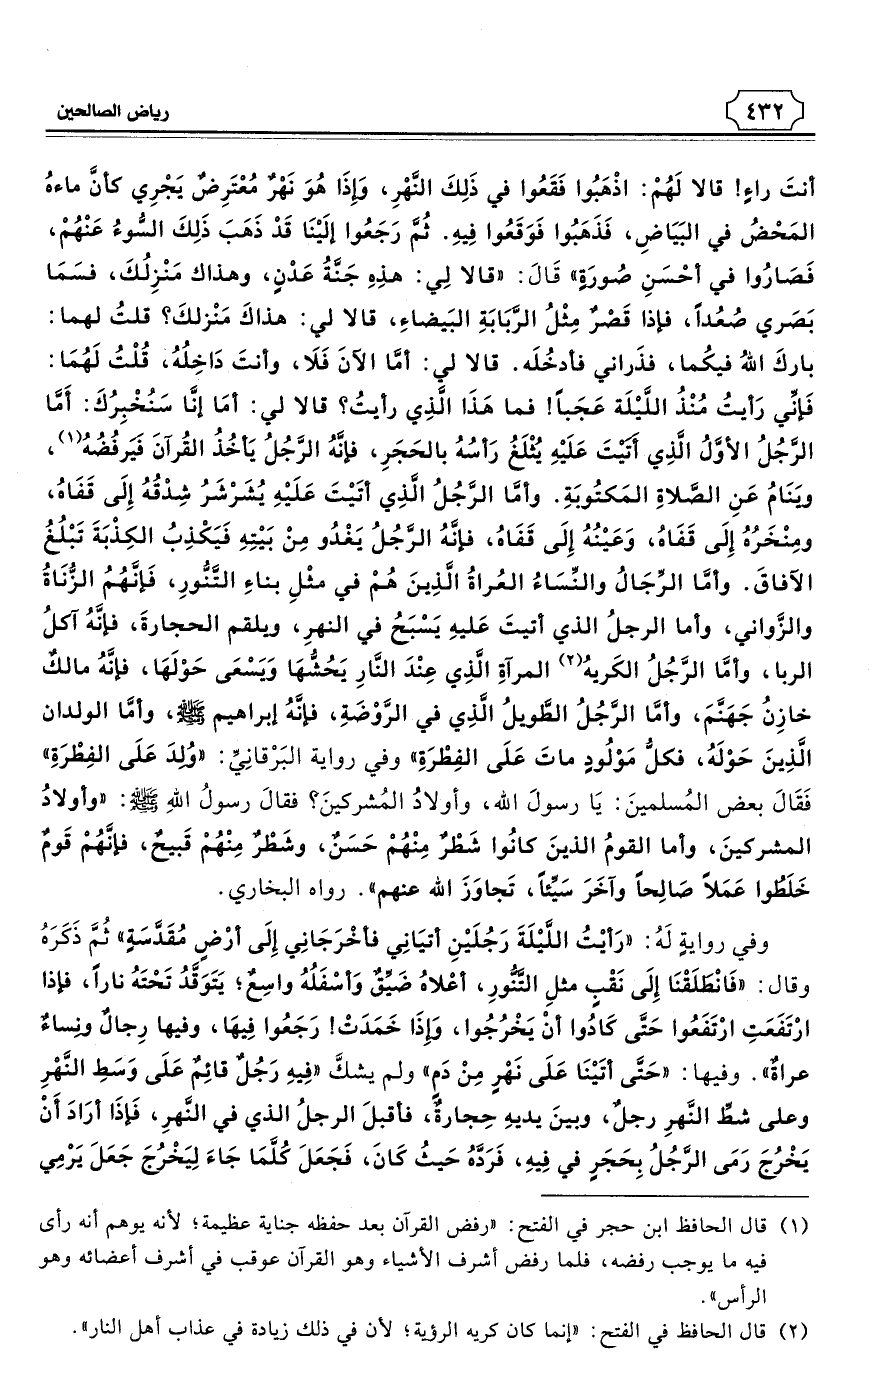 ٤٣٢
رياض الصالحين
أنتَ راءٍ! قالا لَهُمْ: اذْهَبُوا فَقَعُوا في ذَلِكَ النَّهْرِ، وَإِذَا هُوَ نَهْرٌ مُعْتَرِضٌ يَجْرِي كأنَّ ماءهُ
المَحْضُ في البَيَاضِ، فَذَهَبُوا فَوَقَعُوا فِيهِ. ثُمَّ رَجَعُوا إلَيْنَا قَدْ ذَهَبَ ذَلِكَ السُّوءُ عَنْهُمْ،
فَصَارُوا في أحْسَنِ صُورَةٍ» قَالَ: «قالا لِي: هذِهِ جَنَّةُ عَدْنٍ، وهذاك مَنْزِلُكَ، فسَمَا
بَصَري صُعُداً، فإذا قَصْرٌ مِثْلُ الرَّبَابَةِ البَيضاءِ، قالا لي: هذاكَ مَنْزِلكَ؟ قلتُ لهما:
باركَ اللهُ فيكُما، فذَراني فأدخُلَه. قالا لي: أمَّا الآنَ فَلَا، وأنتَ دَاخِلُهُ، قُلْتُ لَهُمَا:
فَإنِّي رَأيتُ مُنْذُ اللَّيْلَة عَجَباً! فما هَذَا الَّذِي رأيتُ؟ قالا لي: أمَا إنَّا سَنُخْبِرُكَ: أمَّا
الرَّجُلُ الأوَّلُ الَّذِي أَتَيْتَ عَلَيْهِ يُثْلَغُ رَأسُهُ بالحَجَرِ، فإنَّهُ الرَّجُلُ يَأخُذُ القُرآنَ فَيَرفُضُهُ(١)،
ويَنَامُ عَنِ الصَّلاةِ المَكتُوبَةِ. وأمَّا الرَّجُلُ الَّذِي أتَيْتَ عَلَيْهِ يُشَرْشَرُ شِدْقُهُ إلَى قَفَاهُ،
ومِنْخَرُهُ إلَى قَفَاهُ، وَعَيْنُهُ إلَى قَفَاهُ، فإنَّهُ الرَّجُلُ يَغْدُو مِنْ بَيْتِهِ فَيَكْذِبُ الكِذْبَةَ تَبْلُغُ
الآفاقَ. وأمَّا الرِّجَالُ والنِّسَاءُ العُراةُ الَّذِينَ هُمْ في مثْلِ بناءِ التَّنُّورِ، فَإنَّهُمُ الزُّنَاةُ
والزَّواني، وأما الرجلُ الذي أتيتَ عَليهِ يَسْبَحُ في النهرِ، ويلقم الحجارةَ، فإنَّهُ آكلُ
الربا، وأمَّا الرَّجُلُ الكَريهُ(٢) المرآةِ الَّذِي عِنْدَ النَّارِ يَحُشُّهَا وَيَسْعَى حَوْلَهَا، فإنَّهُ مالكٌ
خازِنُ جَهَنَّمَ، وأمَّا الرَّجُلُ الطَّويلُ الَّذي في الرَّوْضَةِ، فإنَّهُ إبراهيم ﷺ، وأمَّا الولدان
الَّذِينَ حَوْلَهُ، فكلُّ مَوْلُودٍ ماتَ عَلَى الفِطْرَةِ» وفي رواية البَرْقانِيِّ: «وُلِدَ عَلَى الفِطْرَةِ»
فَقَالَ بعض المُسلمينَ: يَا رسولَ الله، وأولادُ المُشركينَ؟ فقالَ رسولُ اللهِ ﷺ: «وأولادُ
المشركينَ، وأما القومُ الذينَ كانُوا شَطْرٌ مِنْهُمْ حَسَنٌ، وشَطْرٌ مِنْهُمْ قَبيحٌ، فإنَّهُمْ قَومٌ
خَلَطُوا عَمَلاً صَالِحاً وآخَرَ سَيِّئاً، تَجاوَزَ الله عنهم». رواه البخاري.
وفي روايةٍ لَهُ: «رَأيْتُ اللَّيْلَةَ رَجُلَيْنِ أتيَانِي فأخْرَجَانِي إلَى أرْضٍ مُقَدَّسَةٍ» ثُمَّ ذَكَرَهُ
وقال: «فَانْطَلَقْنَا إلَى نَقْبٍ مثلِ التَّنُّورِ، أعْلاهُ ضَيِّقٌ وَأسْفَلُهُ واسِعٌ؛ يَتَوَقَّدُ تَحْتَهُ ناراً، فإذا
ارْتَفَعَتِ ارْتَفَعُوا حَتَّى كَادُوا أنْ يَخْرُجُوا، وَإذَا خَمَدَتْ! رَجَعُوا فِيهَا، وفيها رِجالٌ ونِساءٌ
عراةٌ». وفيها: «حَتَّى أتَيْنَا عَلَى نَهْرٍ مِنْ دَمٍ» ولم يشكَّ «فِيهِ رَجُلٌ قائِمٌ عَلَى وَسَطِ النَّهْرِ
وعلى شطِّ النَّهرِ رجلٌ، وبينَ يديهِ حِجارةٌ، فأقبلَ الرجلُ الذي في النَّهرِ، فَإذَا أرَادَ أنْ
يَخْرُجَ رَمَى الرَّجُلُ بِحَجَرٍ في فِيهِ، فَرَدَّهُ حَيثُ كَانَ، فَجَعَلَ كُلَّمَا جَاءَ لِيَخْرُجَ جَعَلَ يَرْمِي
(١) قال الحافظ ابن حجر في الفتح: «رفض القرآن بعد حفظه جناية عظيمة؛ لأنه يوهم أنه رأى
فيه ما يوجب رفضه، فلما رفض أشرف الأشياء وهو القرآن عوقب في أشرف أعضائه وهو
الرأس».
(٢) قال الحافظ في الفتح: «إنما كان كريه الرؤية؛ لأن في ذلك زيادة في عذاب أهل النار».